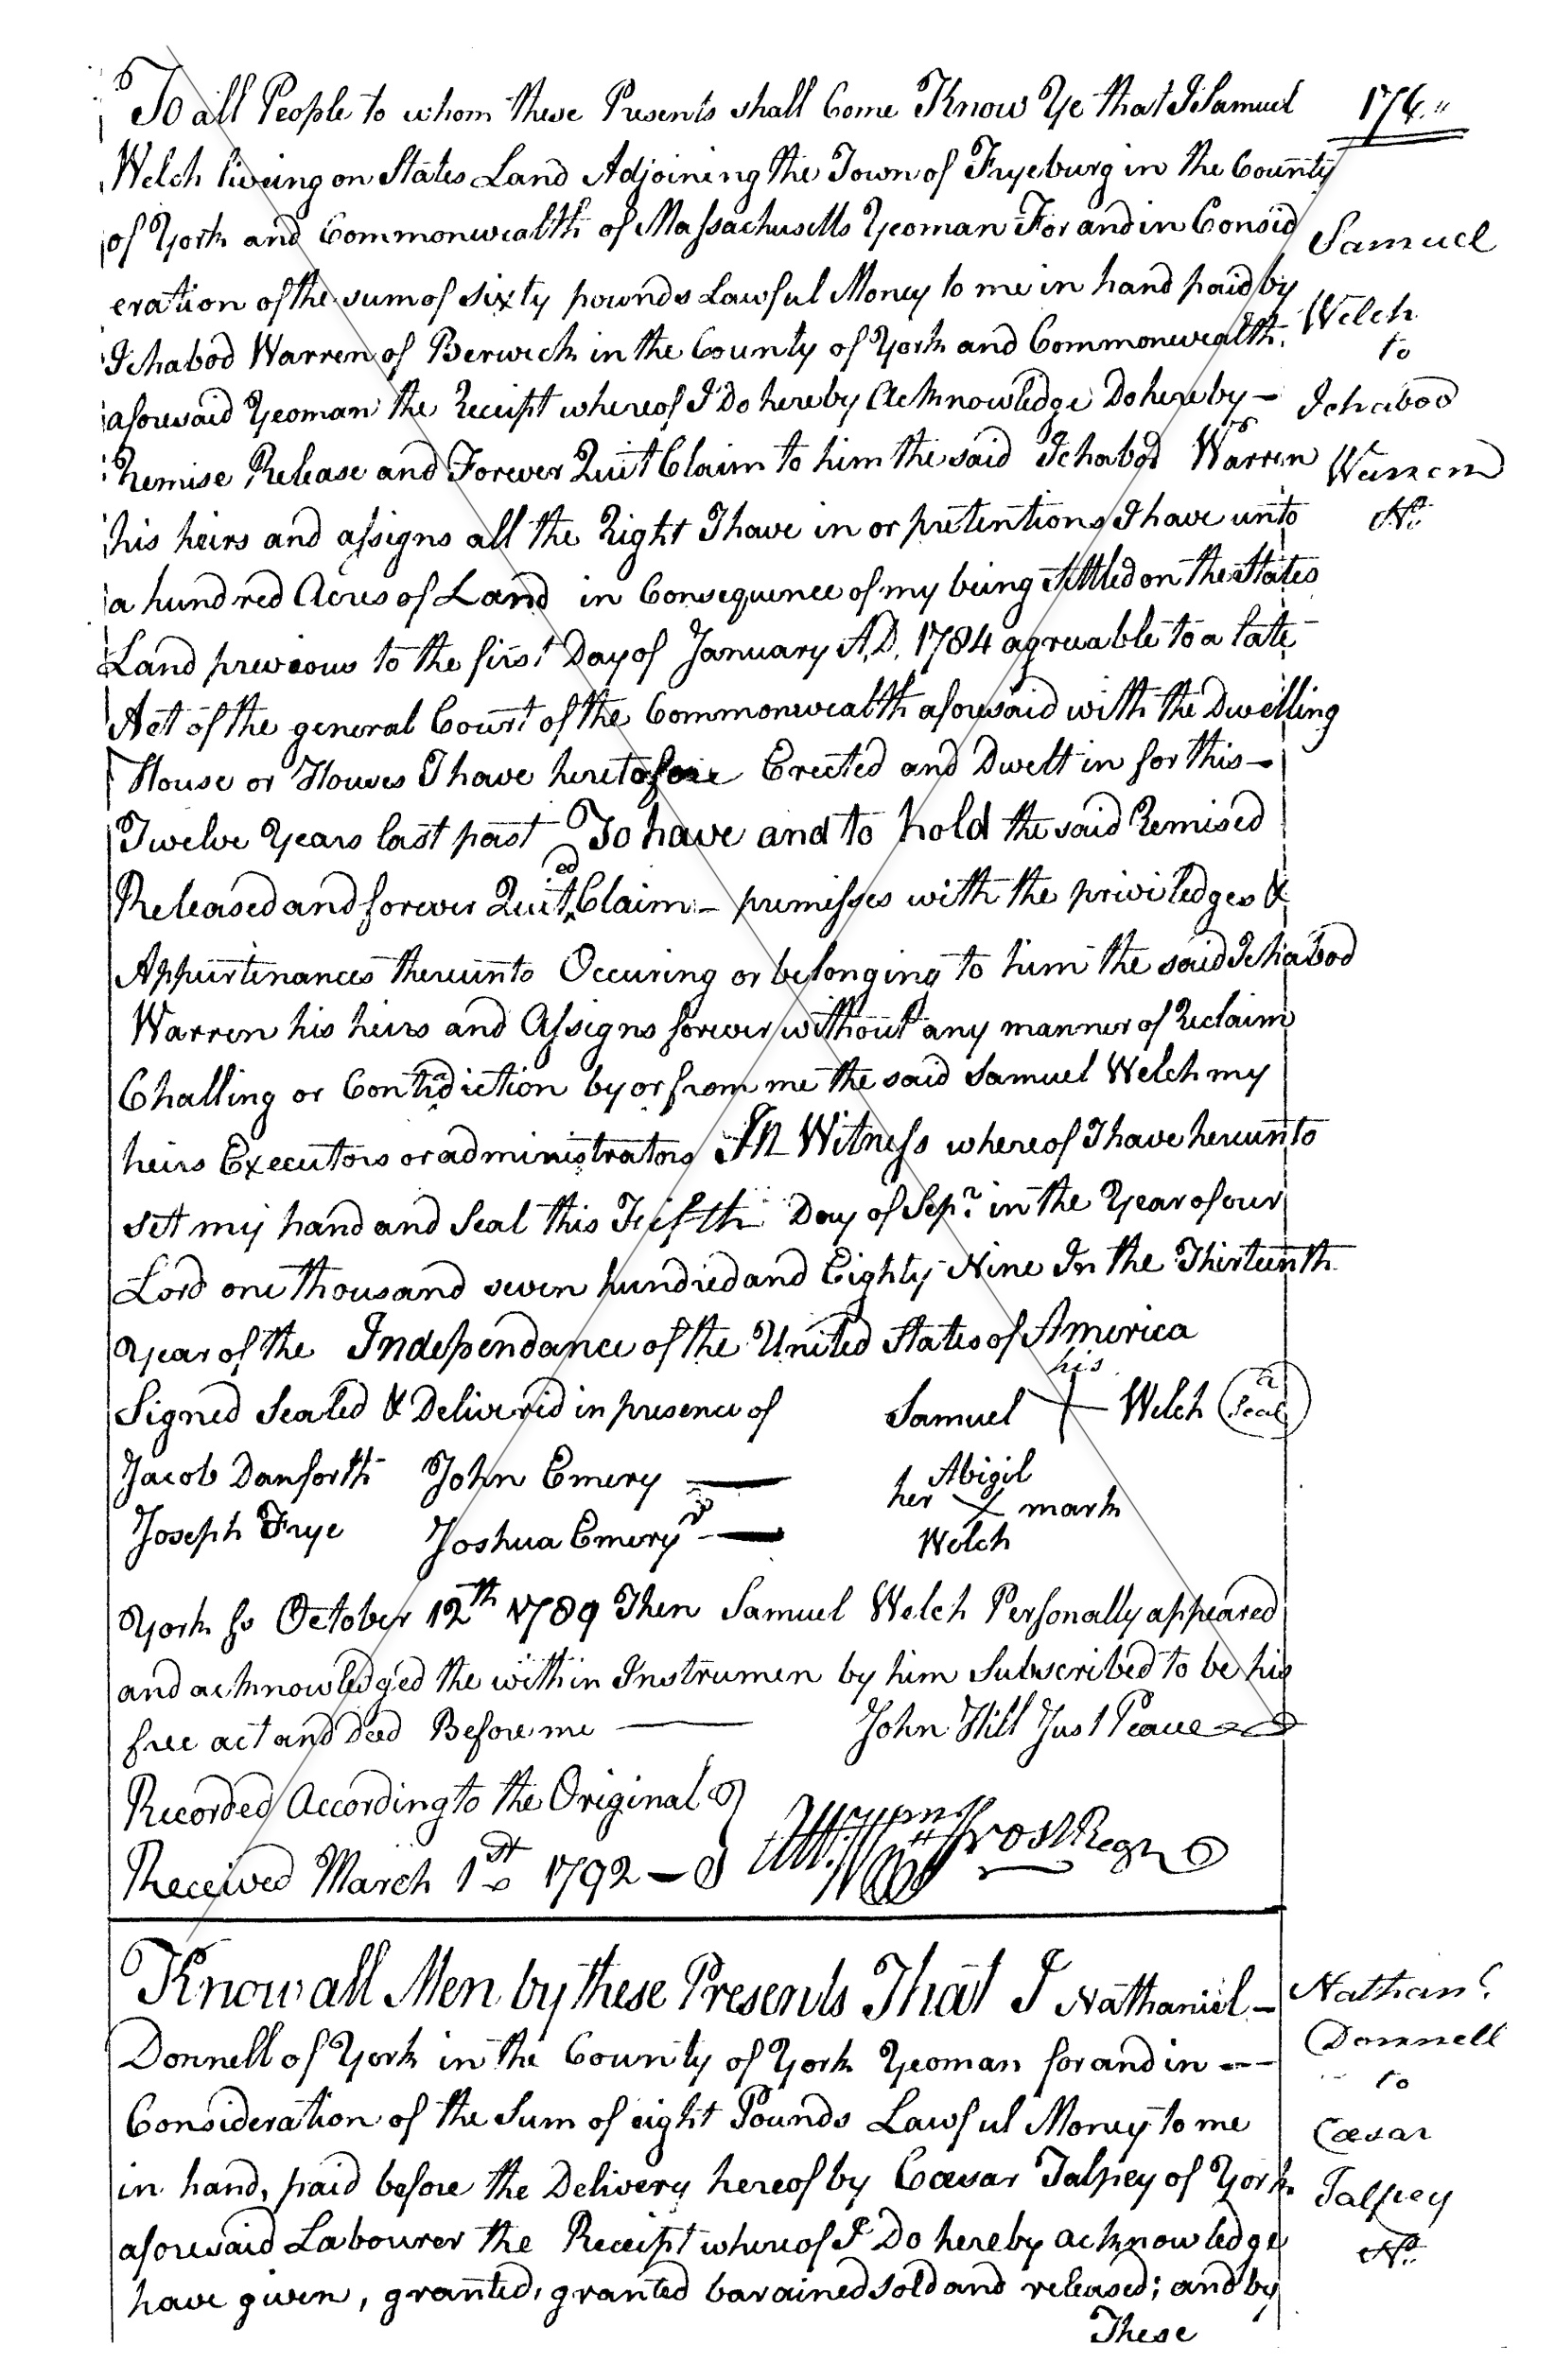 To all People to whom these Presents shall Come Know Ye that I Samuel
176.
Welch liveing on States Land Adjoining the Town of Fryeburg in the County
of York and Commonwealth of Massachusetts Yeoman For and in Consid
eration of the sum of sixty pownds Lawful Money to me in hand paid by
Ichabod Warren of Berwick in the County of York and Commonwealth
aforesaid Yeoman the Receipt whereof I Do hereby Acknowledge Do hereby —
Remise Release and Forever Quit Claim to him the said Ichabod Warren
his heirs and assigns all the Right I have in or pretentions I have unto
a hundred Acres of Land in Consequence of my being Settled on the States
Land previous to the first Day of January A.D. 1784 agreeable to a late
Act of the general Court of the Commonwealth aforesaid with the Dwelling
House or Houses I have heretofore Erected and Dwelt in for this —
Twelve Years last past To have and to hold the said Remised
Released and forever Quit Claimed — premisses with the priviledges &
Appurtenances thereunto Occuring or belonging to him the said Ichabod
Warren his heirs and Assigns forever without any manner of Reclaim
Challing or Contradiction by or from me the said Samuel Welch my
heirs Executors or administrators In Witness whereof I have hereunto
set my hand and Seal this Day of Sepr. in the Year of our
Lord one thousand seven hundred and Eighty Nine In the Thirteenth
Year of the Independance of the United States of America
Signed Sealed & Deliverid in presence of
his
Samuel + Welch a Seal
Jacob Danforth John Emery —
Joseph Frye Joshua Emery 3d —
Abigil
her X mark
Welch
York ss October 12th 1789 Then Samuel Welch Personally appeared
and acknowledged the within Instrumen by him Subscribed to be his
free act and Deed Before me — John Hill Just Peace
Recorded According to the Original
Received March 1st 1792 — Att. Wm Frost Regr
Samuel
Welch
to
Ichabod
Warren
Know all Men by these Presents That I Nathaniel —
Donnell of York in the County of York Yeoman for and in —
Consideration of the Sum of eight Pounds Lawful Money to me
in hand, paid before the Delivery hereof by Cæsar Talpey of York
aforesaid Labourer the Receipt whereof I Do hereby acknowledge
have given, granted, granted barained sold and released; and by
These
Nathanl.
Donnell
to
Cæsar
Talpey